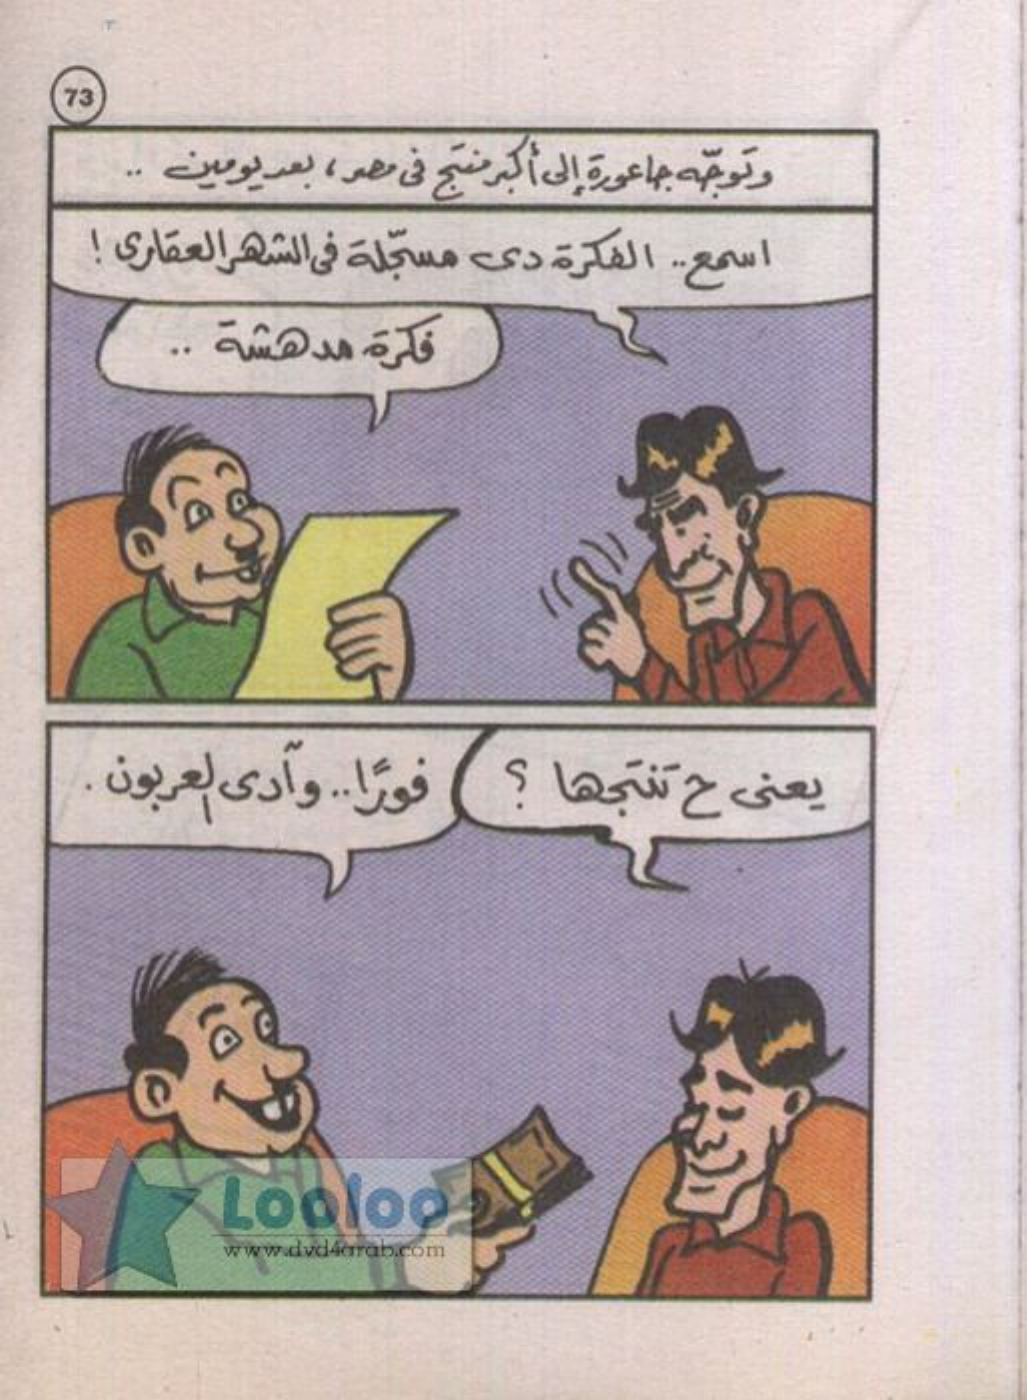 73
وتوجّه جاعورة إلى أكبر منتج فى مصر، بعد يومين ..
اسمع.. الفكرة دى مسجّلة فى الشهر العقارى !
فكرة مدهشة ..
يعنى ح تنتجها ؟
فورًا.. وآدى العربون .
Looloo
www.dvd4arab.com